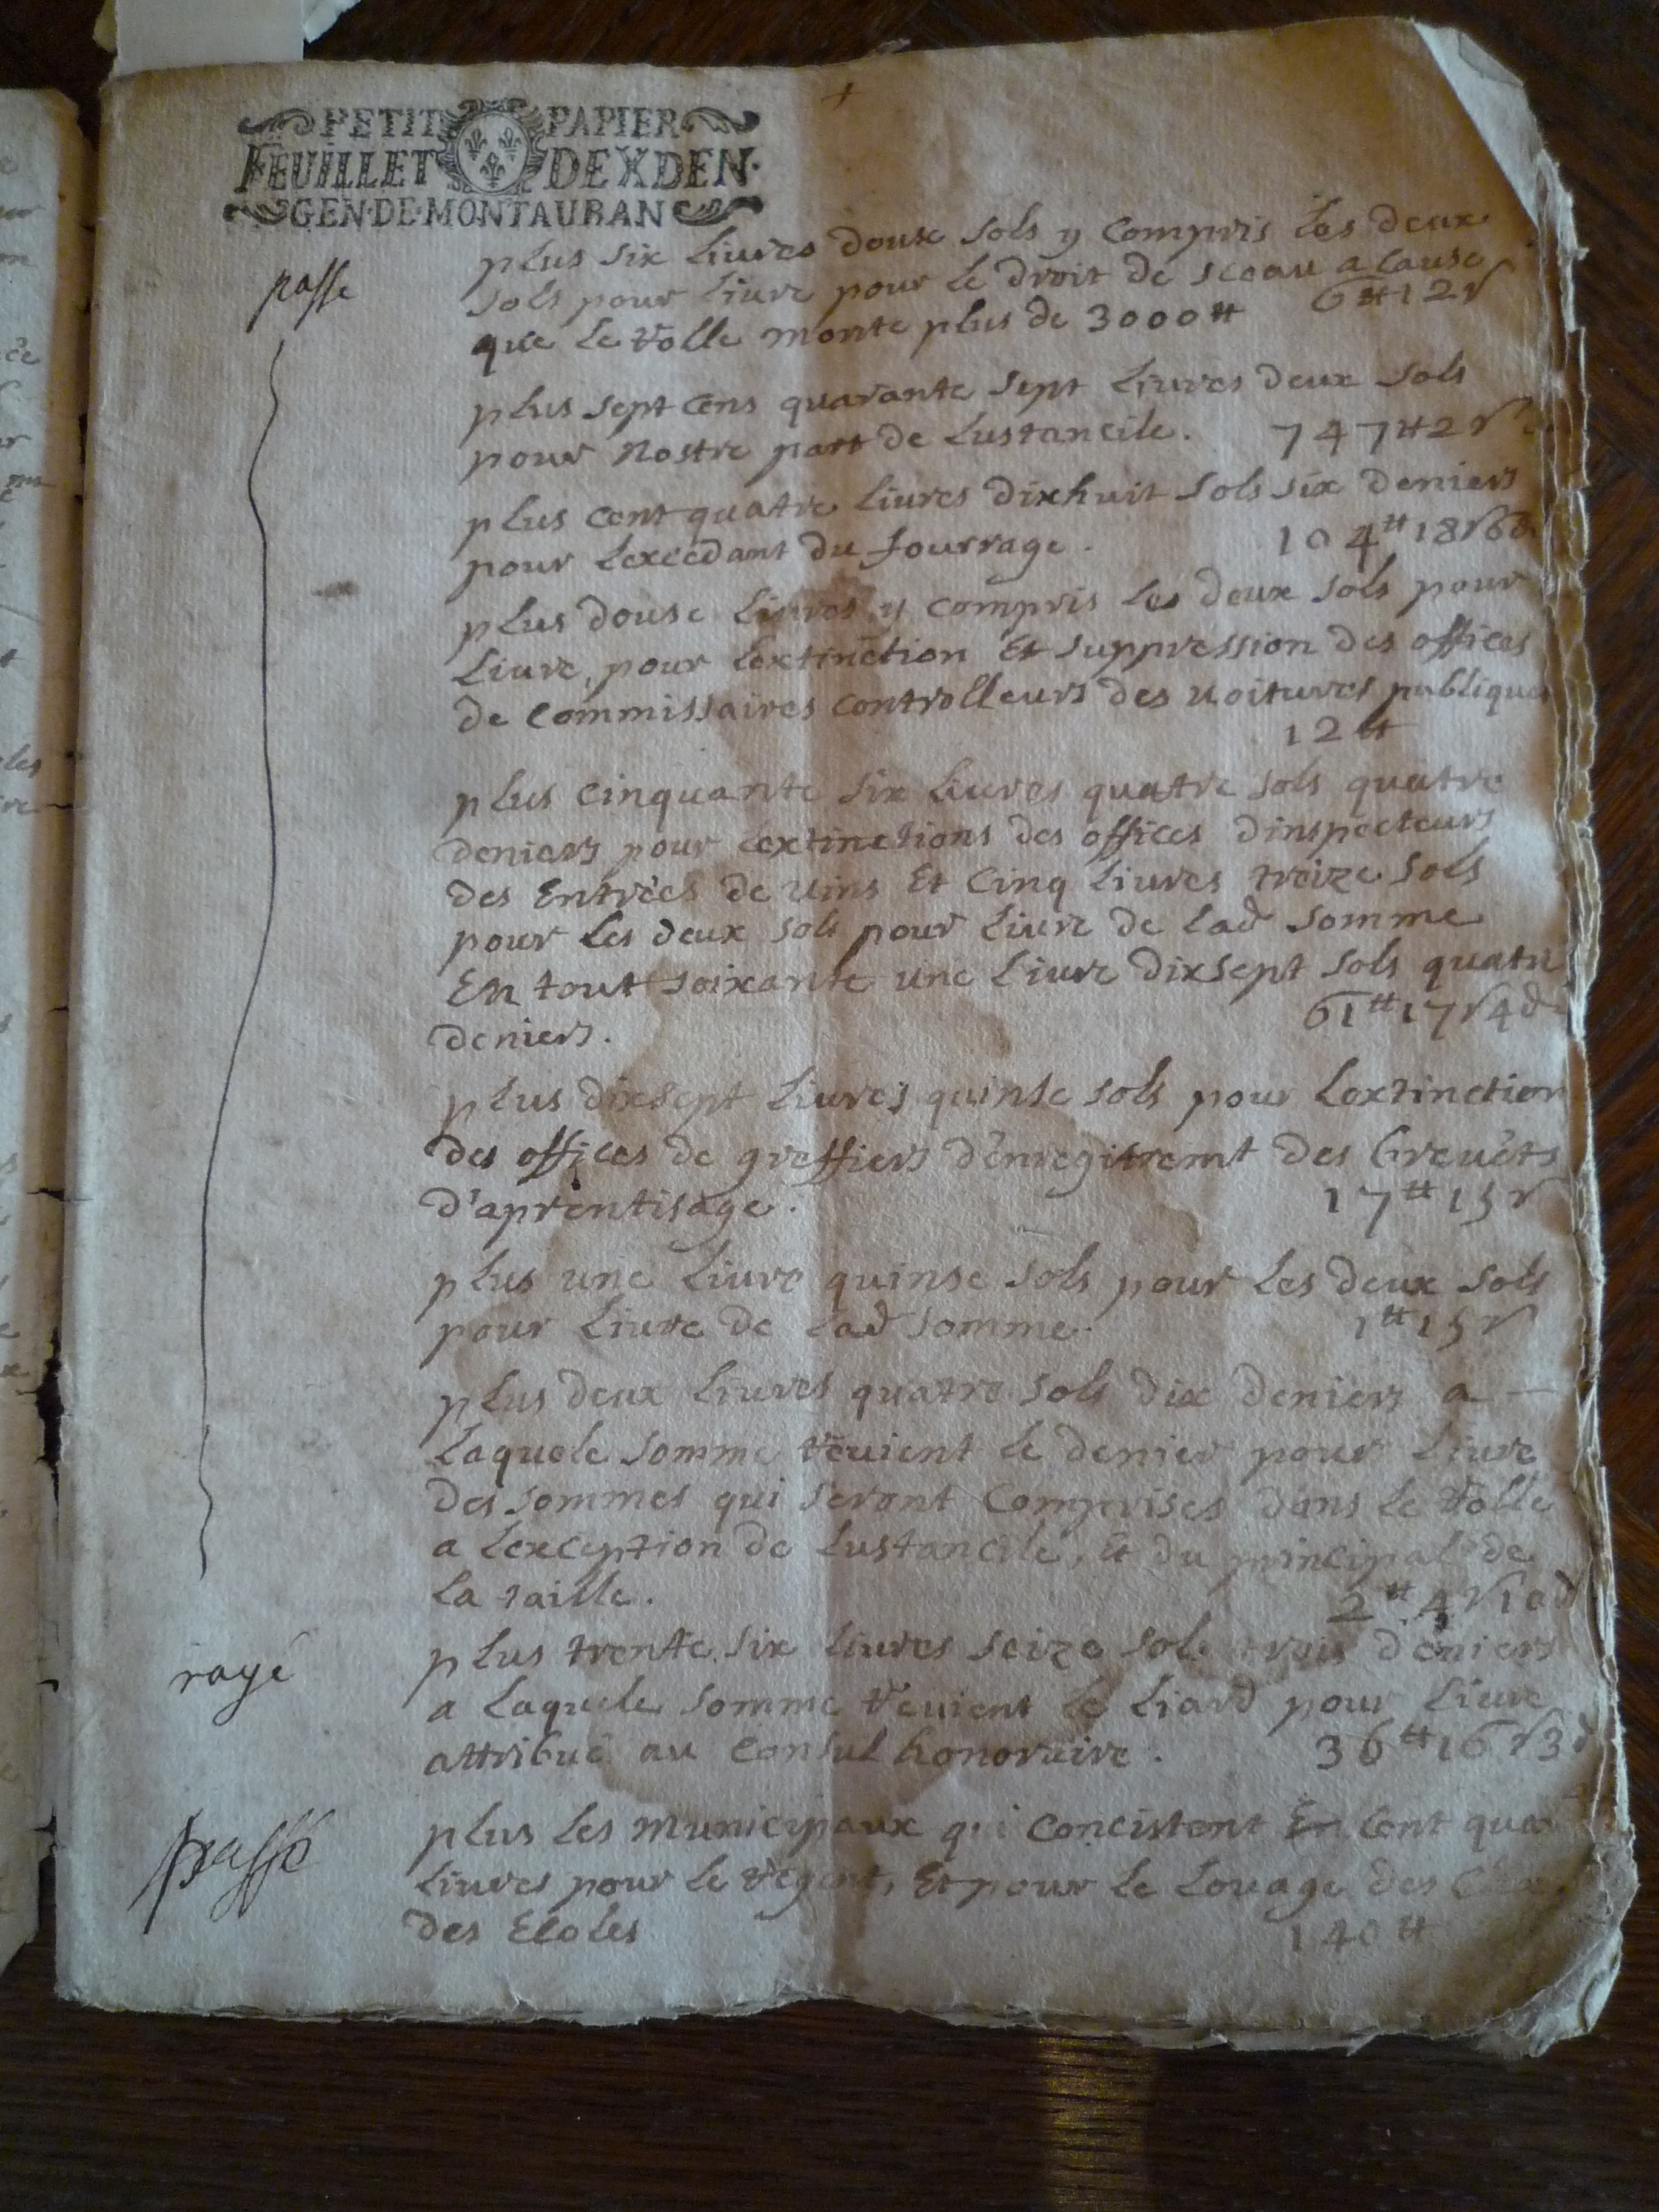 PETIT PAPIER
FEUILLET DE X DEN.
GEN·DE·MONTAUBAN
plus six liures douse sols y compris les deux
passe
sols pour liure pour le droit de sceau a cause
que le rolle monte plus de 3000tt 6tt12s
plus sept cens quarante sept liures deux sols
pour nostre part de lustancile. 747tt2s
plus cent quatre liures dixhuit sols six deniers
pour lexcedant du fourrage. 104tt18s6d
plus douse liures, y compris les deux sols pour
liure, pour lextinction Et suppression des offices
de commissaires controlleurs des uoitures publiques
12tt
plus cinquante six liures quatre sols quatre
deniers pour lextinctions des offices dinspecteurs
des Entrées de uins Et cinq liures treize sols
pour les deux sols pour liure de lad somme
En tout soixante une liure dixsept sols quatre
deniers. 61tt17s4d
plus dixsept liures quinse sols pour lextinction
des offices de greffiers d'enregitremt des breuets
d'aprentisage. 17tt15s
plus une liure quinse sols pour les deux sols
pour liure de lad somme. 1tt15s
plus deux liures quatre sols dix deniers a
laquele somme reuient le denier pour liure
des sommes qui seront comprises dans le rolle
a lexception de lustancile, et du principal de
la taille. 2tt4s10d
rayé
plus trente six liures seize sols trois deniers
a laquele somme reuient le liard pour liure
attribué au consul honoraire. 36tt16s3d
passé
plus les municipaux qui concistent En cent
liures pour le regent, Et pour le louage des
des Ecoles 140tt